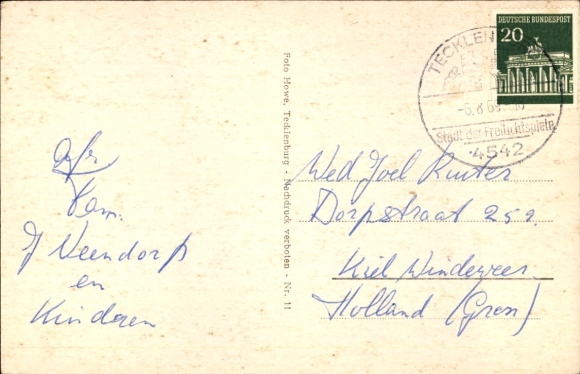 DEUTSCHE BUNDESPOST
20
TECKLEN
-6.8.69
Stadt der Freilichtspiele
4542
Foto Howe, Tecklenburg - Nachdruck verboten - Nr. 11
Afz
Fam.
J Veendorp
en
Kinderen
Wed Joel Ruiter
Dorpstraat 252
Kiel Windeweer
Holland (Gron)